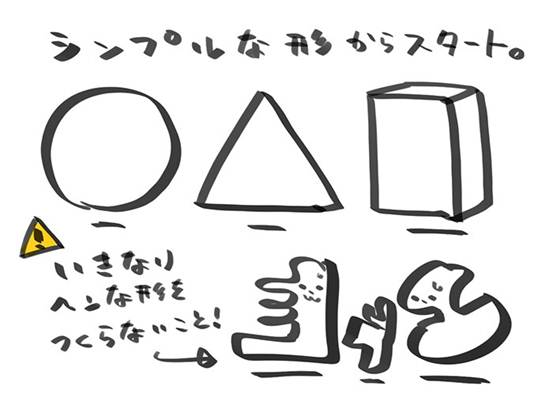 シンプルな形からスタート。
いきなり
ヘンな形を
つくらないこと!